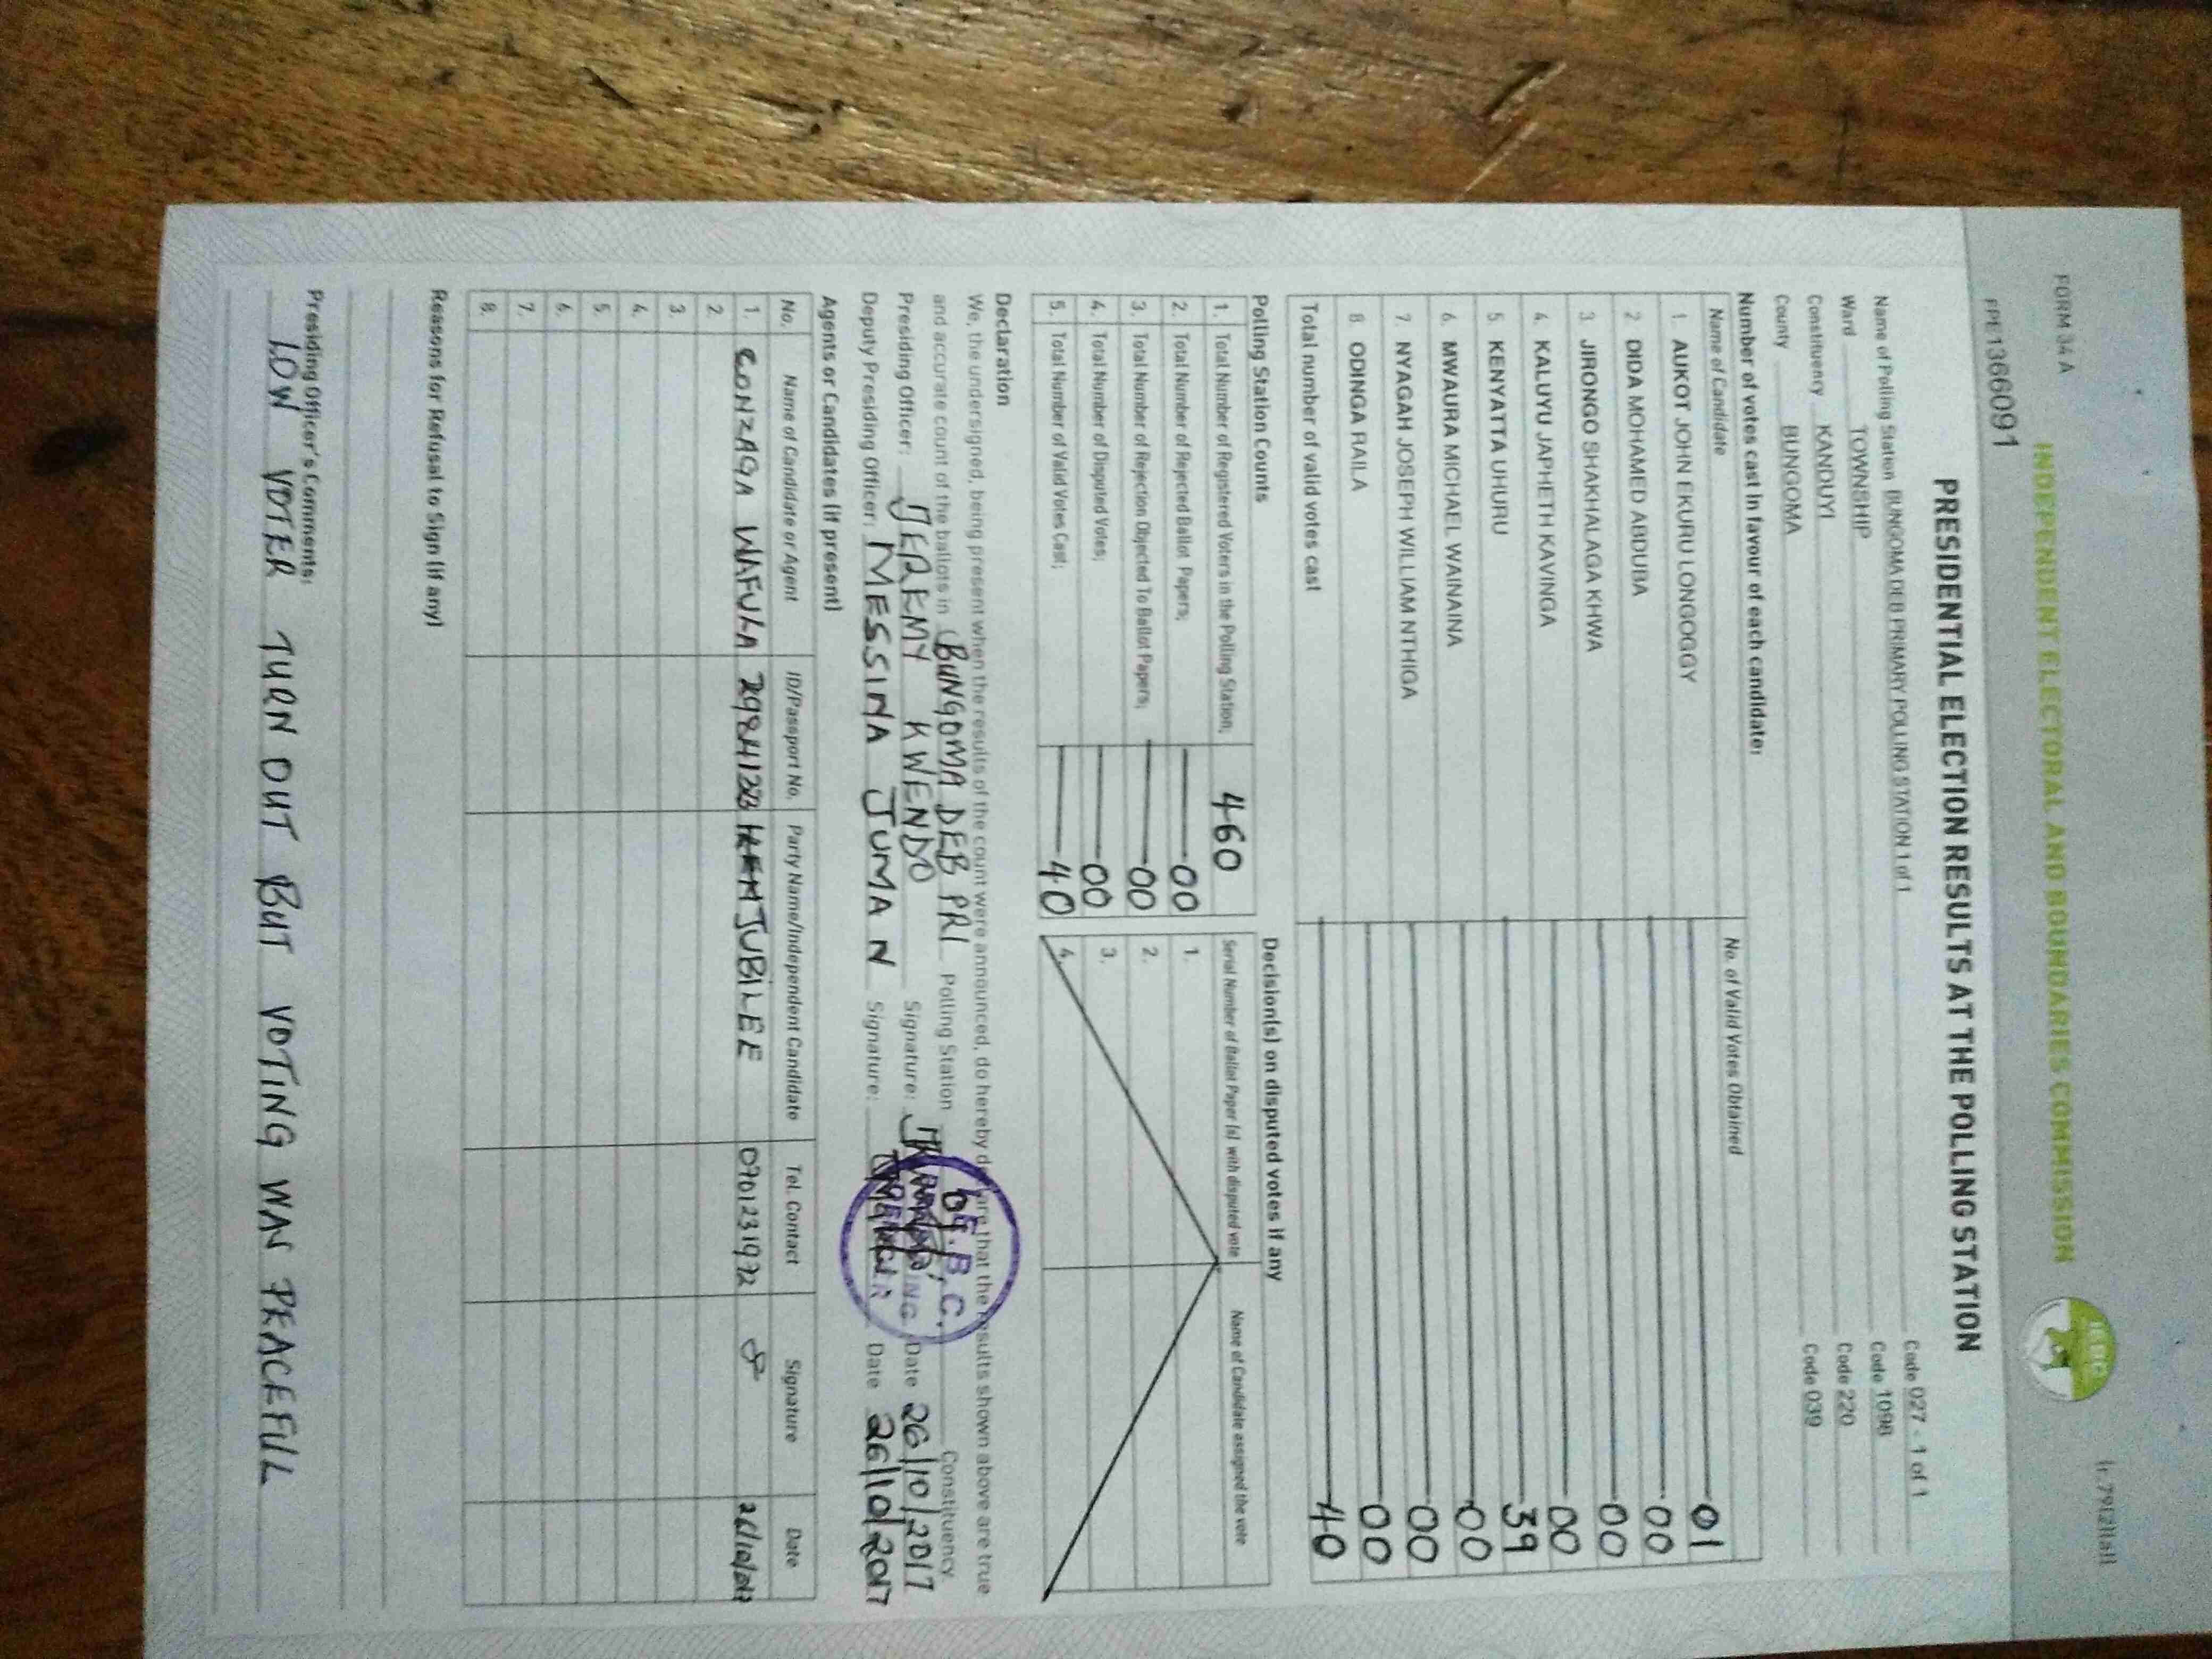 FORM 34 A
(r.79(2)(a))
INDEPENDENT ELECTORAL AND BOUNDARIES COMMISSION
IEBC
FPE 1366091
PRESIDENTIAL ELECTION RESULTS AT THE POLLING STATION
Name of Polling Station BUNGOMA DEB PRIMARY POLLING STATION 1 of 1 Code 027 - 1 of 1
Ward TOWNSHIP Code 1098
Constituency KANDUYI Code 220
County BUNGOMA Code 039
Number of votes cast in favour of each candidate:
Name of Candidate No. of Valid Votes Obtained
1. AUKOT JOHN EKURU LONGOGGY 01
2 DIDA MOHAMED ABDUBA 00
3. JIRONGO SHAKHALAGA KHWA 00
4. KALUYU JAPHETH KAVINGA 00
5. KENYATTA UHURU 39
6. MWAURA MICHAEL WAINAINA 00
7. NYAGAH JOSEPH WILLIAM NTHIGA 00
8 ODINGA RAILA 00
Total number of valid votes cast 40
Polling Station Counts
1. Total Number of Registered Voters in the Polling Station; 460
2. Total Number of Rejected Ballot Papers; 00
3. Total Number of Rejection Objected To Ballot Papers; 00
4. Total Number of Disputed Votes; 00
5. Total Number of Valid Votes Cast; 40
Decision(s) on disputed votes if any
Serial Number of Ballot Paper (s) with disputed vote Name of Candidate assigned the vote
1.
2.
3.
4.
Declaration
We, the undersigned, being present when the results of the count were announced, do hereby declare that the results shown above are true
and accurate count of the ballots in BUNGOMA DEB PRI Polling Station Constituency.
Presiding Officer: JEREMY KWENDO Signature: Date 26/10/2017
Deputy Presiding Officer: MESSINA JUMA N Signature: Date 26/10/2017
Agents or Candidates (if present)
No. Name of Candidate or Agent ID/Passport No. Party Name/Independent Candidate Tel. Contact Signature Date
1. GONZAGA WAFULA JUBILEE 0701231992
2
3
4.
5.
6.
7.
8.
Reasons for Refusal to Sign (if any)
Presiding Officer's Comments:
LOW VOTER TURN OUT BUT VOTING WAN PEACEFULL